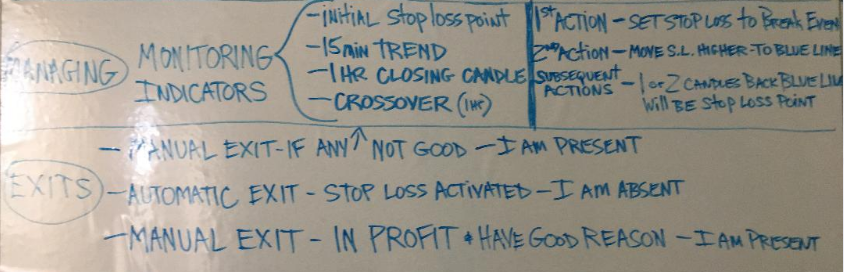 MANAGING
MONITORING INDICATORS
- INITIAL STOP LOSS POINT
- 15 min TREND
- 1 HR CLOSING CANDLE
- CROSSOVER (1HR)
1st ACTION - SET STOP LOSS to Break EVEN
2nd ACTION - MOVE S.L. HIGHER - TO BLUE LINE
SUBSEQUENT ACTIONS - 1 or 2 CANDLES BACK BLUE LINE
Will BE Stop LOSS POINT
EXITS
- MANUAL EXIT - IF ANY ↑ NOT GOOD - I AM PRESENT
- AUTOMATIC EXIT - STOP LOSS ACTIVATED - I AM ABSENT
- MANUAL EXIT - IN PROFIT & HAVE GOOD REASON - I AM PRESENT